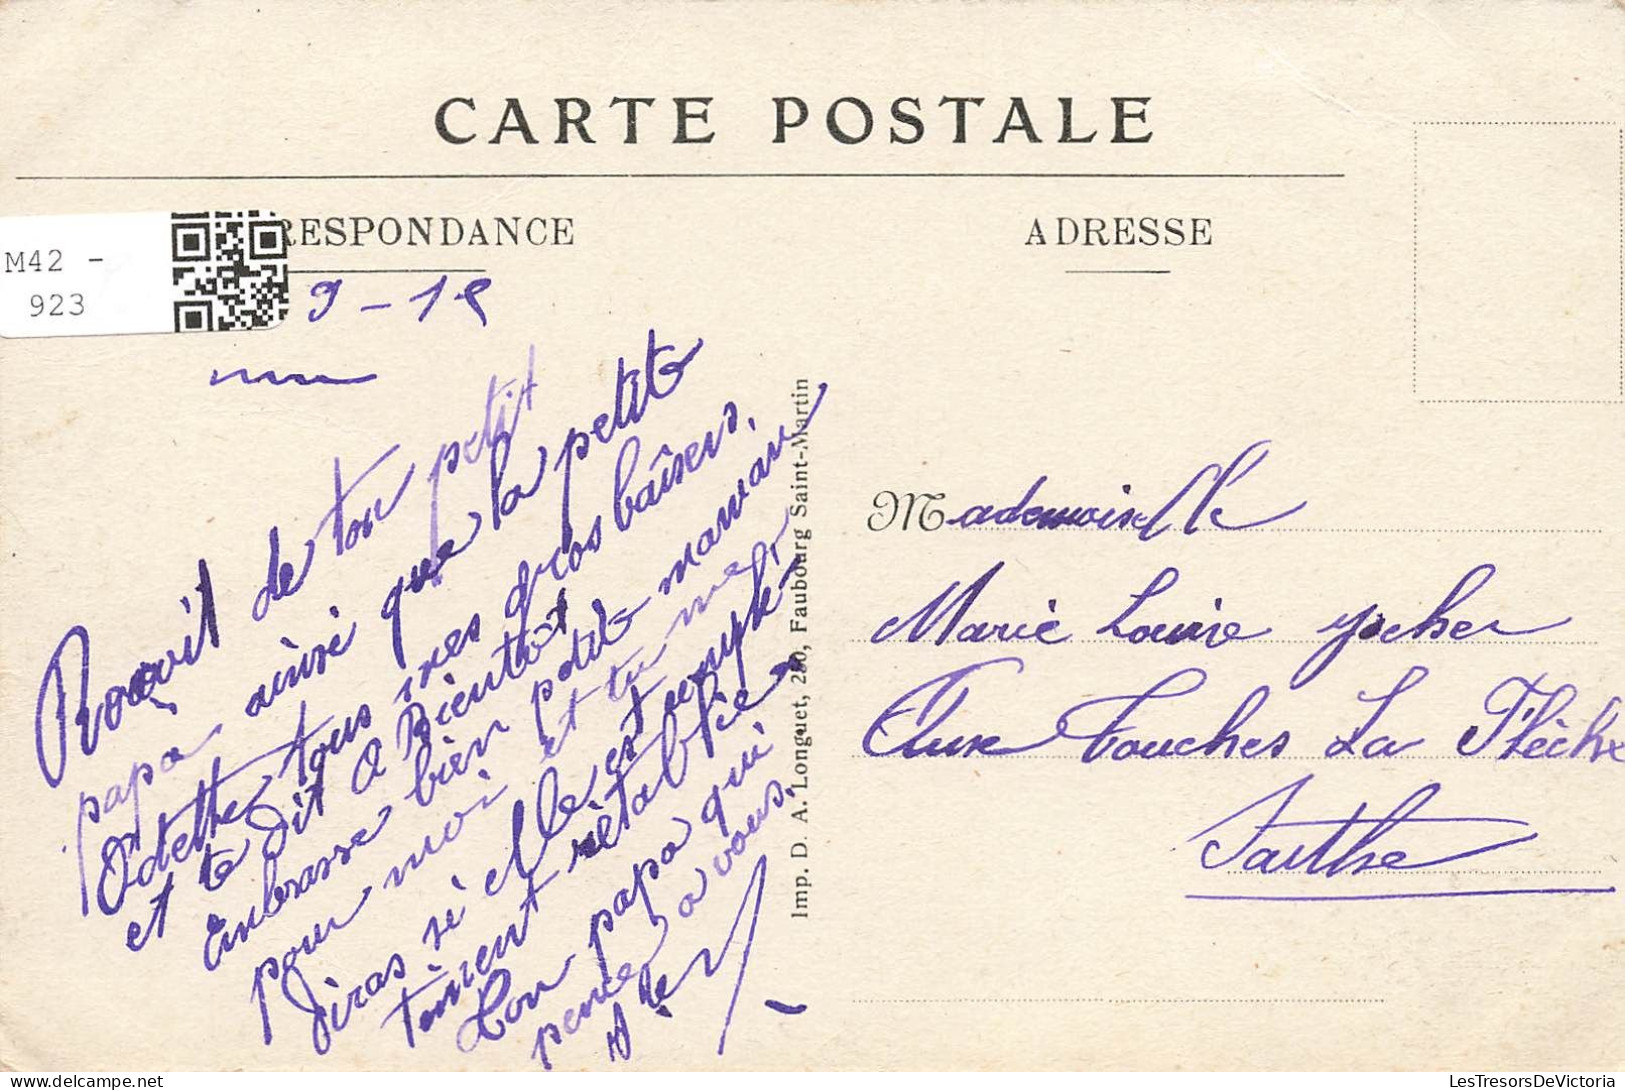 CARTE POSTALE
RESPONDANCE
ADRESSE
M42 -
923
9-15
Reçoit de ton petit
papa ainsi que la petite
Odette tous mes gros baisers.
et te dit a Bientôt
Embrasse bien petite maman
pour moi et tu me
diras si elle est complè
tement rétablie
Ton papa qui
pense a vous.
Imp. D. A. Longuet, 250, Faubourg Saint-Martin
Mademoiselle
Marie Louise
Aux Touches La Flèche
Sarthe
LesTresorsDeVictoria